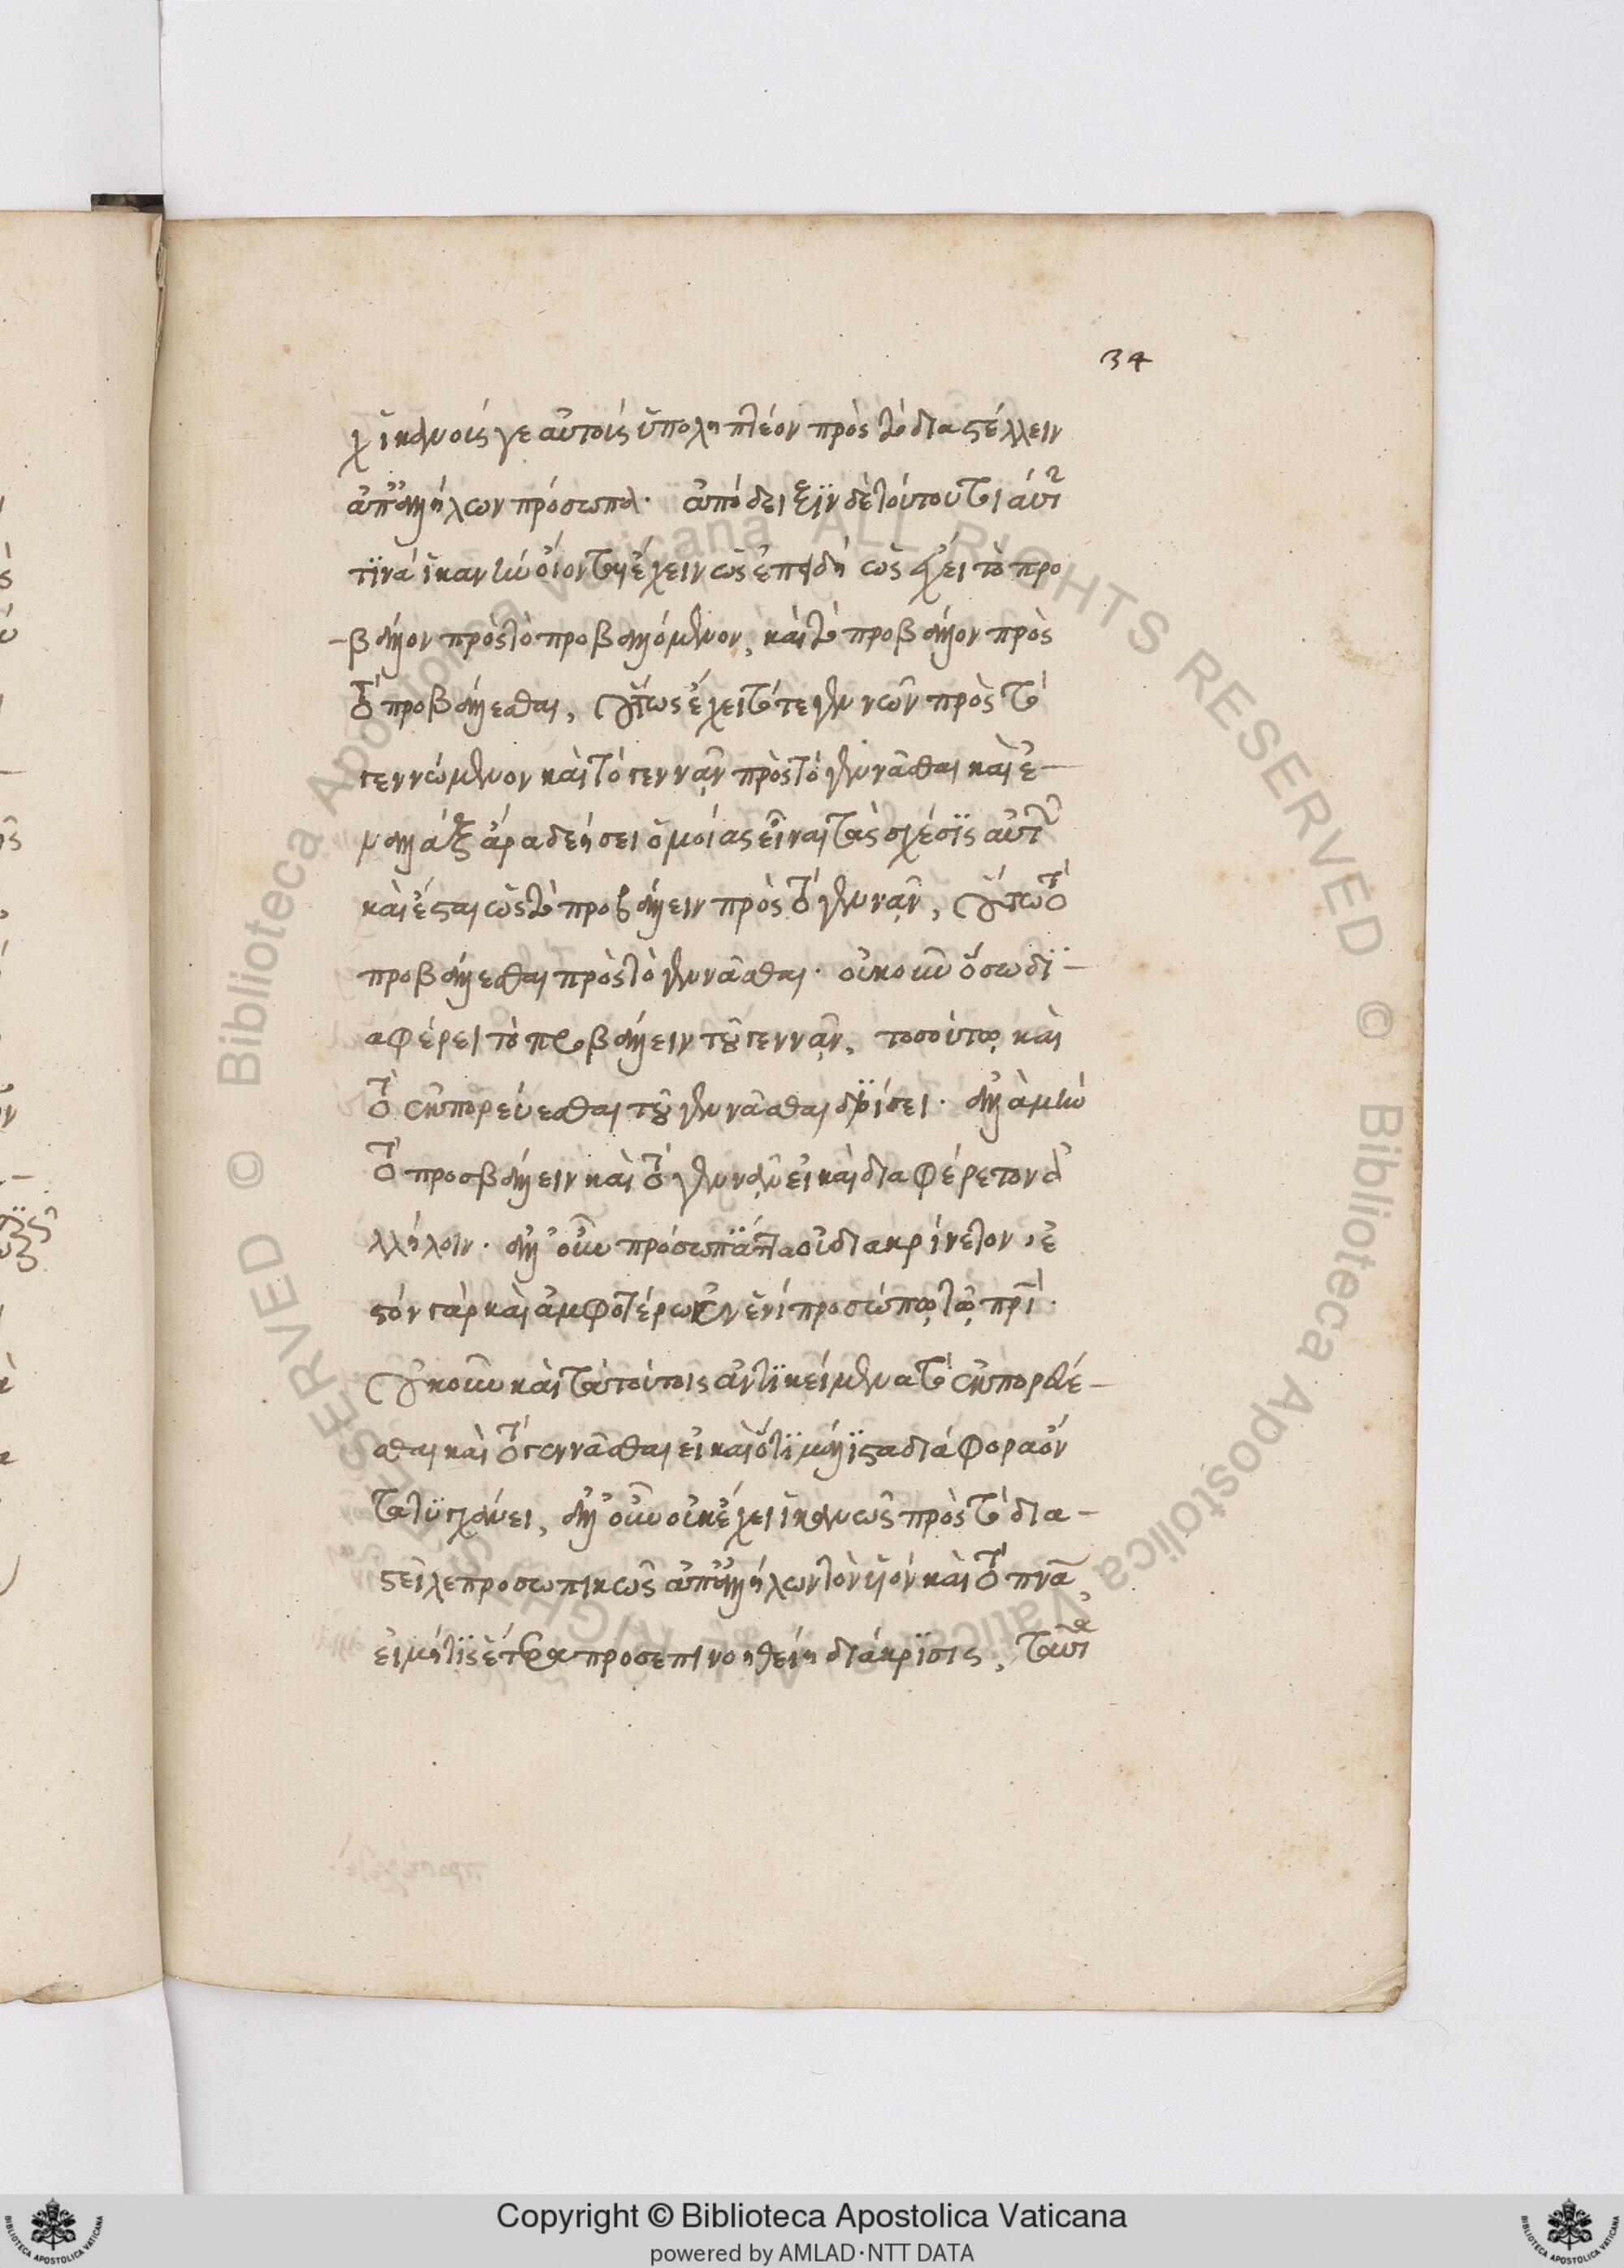 34
καὶ ἱκανοῖς γε αὐτοῖς ὑποληπτέον πρὸς τὸ διαστέλλειν
ἀπ' ἀλλήλων πρόσωπα. ἀπόδειξιν δὲ τούτου τι αὐτ
τινὰ ἱκανὴν οἴονται ἔχειν ὡς ἐπειδὴ ὡς ἔχει τὸ προ
-βάλλον πρὸς τὸ προβαλλόμενον, καὶ τὸ προβάλλον πρὸς
τὸ προβάλλεσθαι, οὕτως ἔχει τό τε γεννῶν πρὸς τὸ
γεννώμενον καὶ τὸ γεννᾶν πρὸς τὸ γεννᾶσθαι καὶ ἐ-
ναλλὰξ ἄρα δεήσει ὁμοίας εἶναι τὰς σχέσις αὐτῶν
καὶ ἔσται ὡς τὸ προβάλλειν πρὸς τὸ γεννᾶν, οὕτω τὸ
προβάλλεσθαι πρὸς τὸ γεννᾶσθαι. οὐκοῦν ὅσω δι-
αφέρει τὸ προβάλλειν τοῦ γεννᾶν, τοσούτῳ καὶ
τὸ ἐκπορεύεσθαι τοῦ γεννᾶσθαι διοίσει. ἀλλὰ μὴν
τὸ προσβάλλειν καὶ τὸ γεννᾶν εἰ καὶ διαφέρετον ἀ
λλήλοιν. ἀλλ' οὖν πρόσωπα οὐ διακρίνετον, ἐ
στὸν γὰρ καὶ ἀμφοτέρω ἐν ἑνὶ προσώπῳ τῷ πρι.
οὐκοῦν καὶ τὰ τούτοις ἀντικείμενα τὸ ἐκπορεύε-
σθαι καὶ τὸ γεννᾶσθαι εἰ καὶ ὅτι μάλιστα διάφορα ὄν
τα τυγχάνει, ἀλλ' οὖν οὐκ ἔχει ἱκανῶς πρὸς τὸ δια-
στεῖλε προσωπικῶς ἀπ' ἀλλήλων τὸν υἱὸν καὶ τὸ πνα
εἰ μή τις ἑτέρα προσεπινοηθείη διάκρισις, ταῦτα
Copyright © Biblioteca Apostolica Vaticana
powered by AMLAD·NTT DATA
© Biblioteca Apostolica Vaticana ALL RIGHTS RESERVED
© Biblioteca Apostolica Vaticana ALL RIGHTS RESERVED